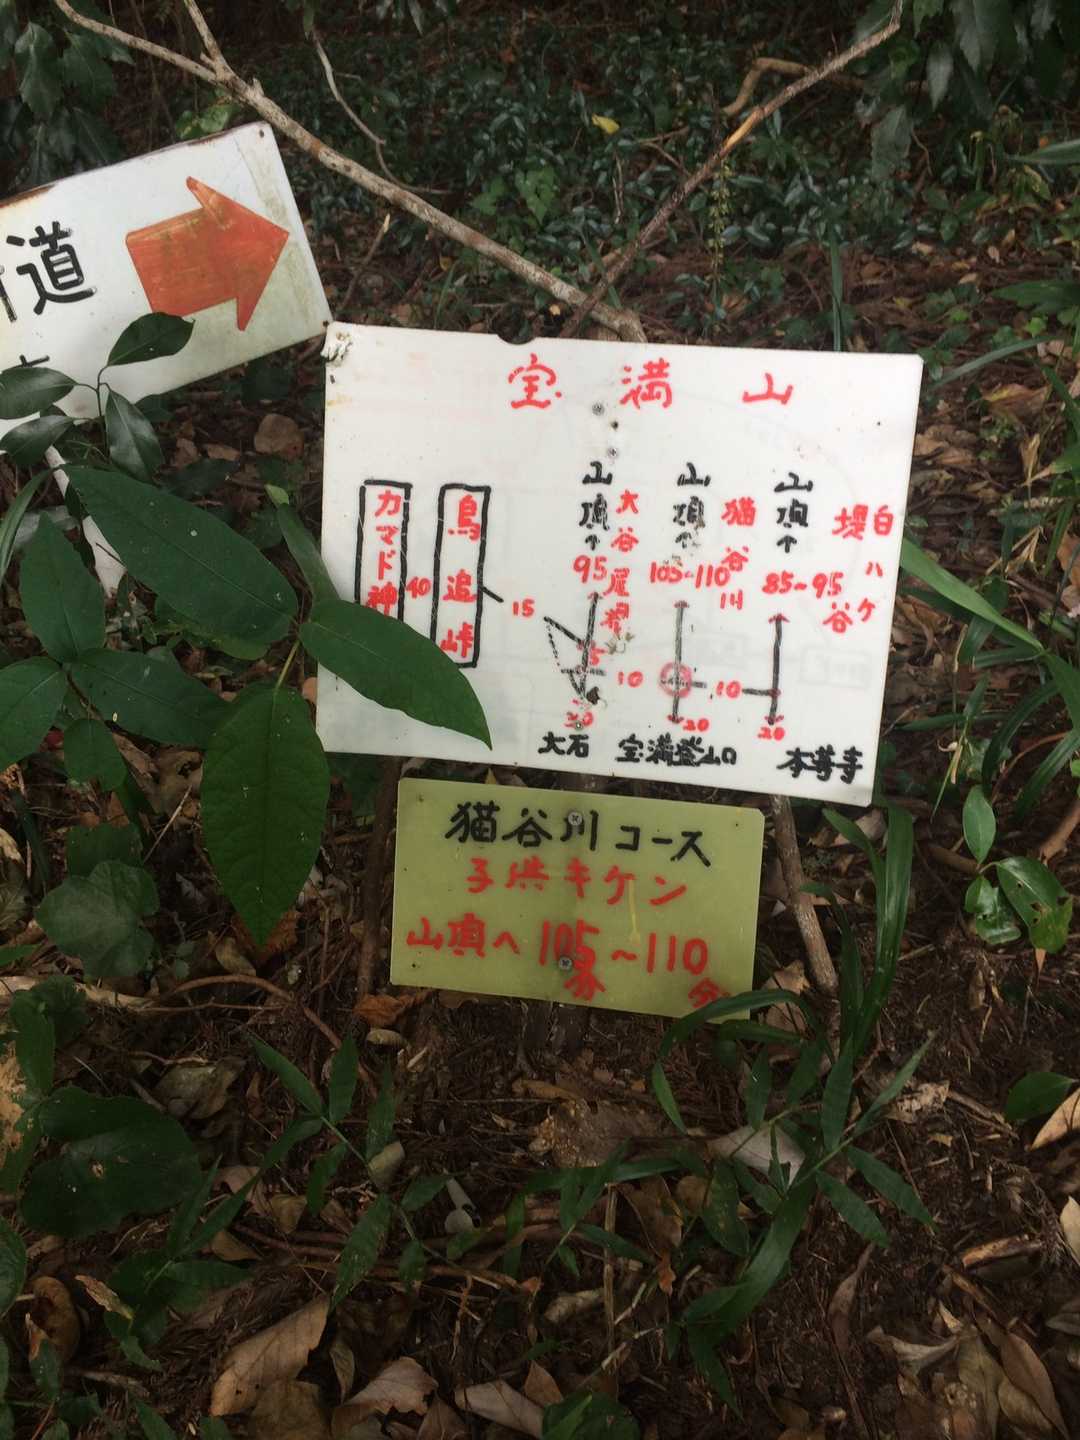 道
宝満山
カマド神
40
鳥追峠
15
山頂
95
大谷尾根
山頂
105~110
猫谷川
山頂
85~95
堤谷
白ハケ
5
10
10
20
20
20
大石
宝満登山口
本尊寺
猫谷川コース
子供キケン
山頂へ105~110
分
分